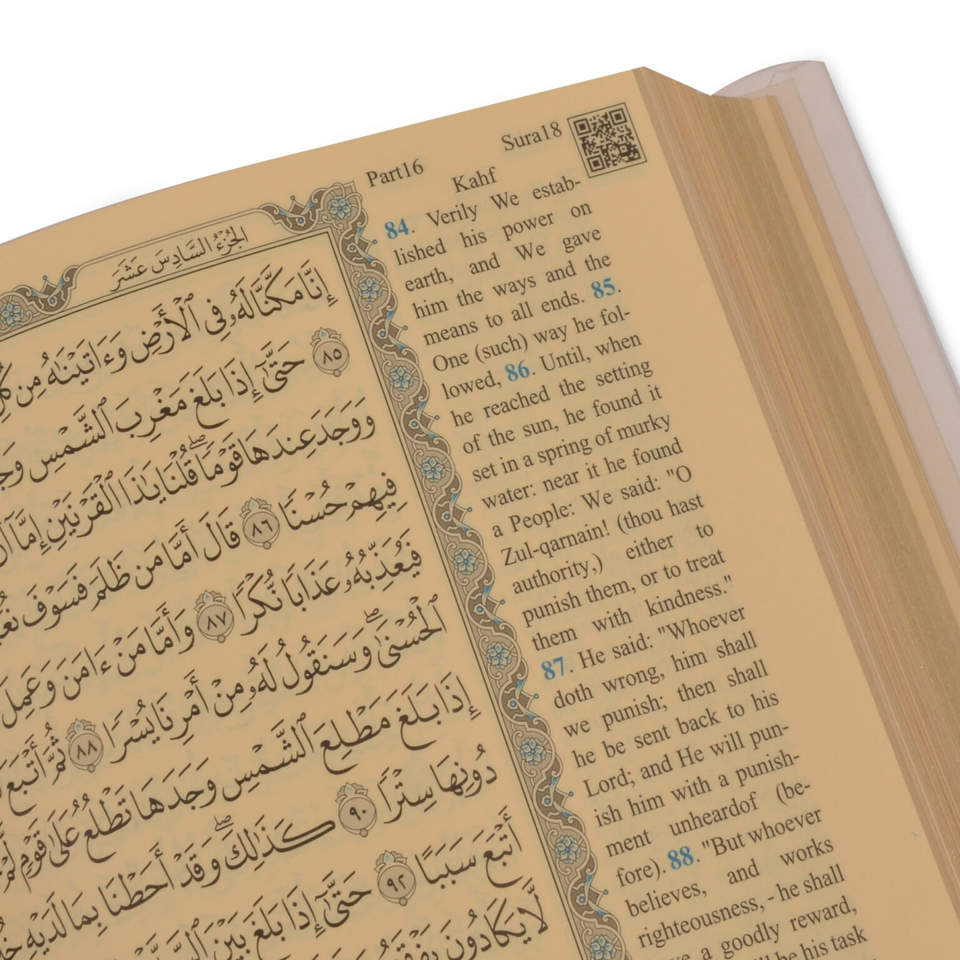 Part16
Sura18
Kahf
84. Verily We estab-
lished his power on
earth, and We gave
him the ways and the
means to all ends. 85.
One (such) way he fol-
lowed, 86. Until, when
he reached the setting
of the sun, he found it
set in a spring of murky
water: near it he found
a People: We said: "O
Zul-qarnain! (thou hast
authority,) either to
punish them, or to treat
them with kindness."
87. He said: "Whoever
doth wrong, him shall
we punish; then shall
he be sent back to his
Lord; and He will pun-
ish him with a punish-
ment unheardof (be-
fore). 88. "But whoever
believes, and works
righteousness, - he shall
a goodly reward,
be his task
الجزء السادس عشر
إِنَّا مَكَّنَّا لَهُۥ فِى ٱلْأَرْضِ وَءَاتَيْنَٰهُ مِن
٨٥ حَتَّىٰٓ إِذَا بَلَغَ مَغْرِبَ ٱلشَّمْسِ
وَوَجَدَ عِندَهَا قَوْمًا ۗ قُلْنَا يَٰذَا ٱلْقَرْنَيْنِ إِمَّآ
فِيهِمْ حُسْنًا ٨٦ قَالَ أَمَّا مَن ظَلَمَ فَسَوْفَ
فَيُعَذِّبُهُۥ عَذَابًا نُّكْرًا ٨٧ وَأَمَّا مَنْ ءَامَنَ وَعَمِلَ
ٱلْحُسْنَىٰ ۖ وَسَنَقُولُ لَهُۥ مِنْ أَمْرِنَا يُسْرًا ٨٨ ثُمَّ أَتْبَعَ
إِذَا بَلَغَ مَطْلِعَ ٱلشَّمْسِ وَجَدَهَا تَطْلُعُ عَلَىٰ قَوْمٍ
دُونِهَا سِتْرًا ٩٠ كَذَٰلِكَ وَقَدْ أَحَطْنَا بِمَا لَدَيْهِ
أَتْبَعَ سَبَبًا ٩٢ حَتَّىٰٓ إِذَا بَلَغَ بَيْنَ
لَّا يَكَادُونَ يَفْقَهُونَ